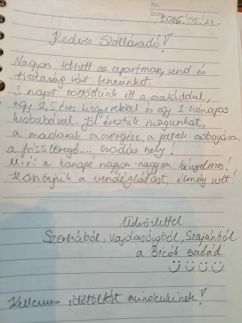 2026/05/21
Kedves Szállásadó!
Nagyon tetszett az apartman, rend és
tisztaság várt bennünket.
3 napot töltöttünk itt a családdal,
egy 2,5 éves kisgyerekkel és egy 2 hónapos
kisbabával. Jól éreztük magunkat,
a madarak csicsergése, a patak csobogása,
a friss levegő... csodás hely!
Ui.: a kanapé nagyon-nagyon kényelmes!
Köszönjük a vendéglátást, élmény volt!
Üdvözlettel
Szerbiából, Vajdaságból, Szajánból
a család
Kellemes időtöltést mindenkinek!